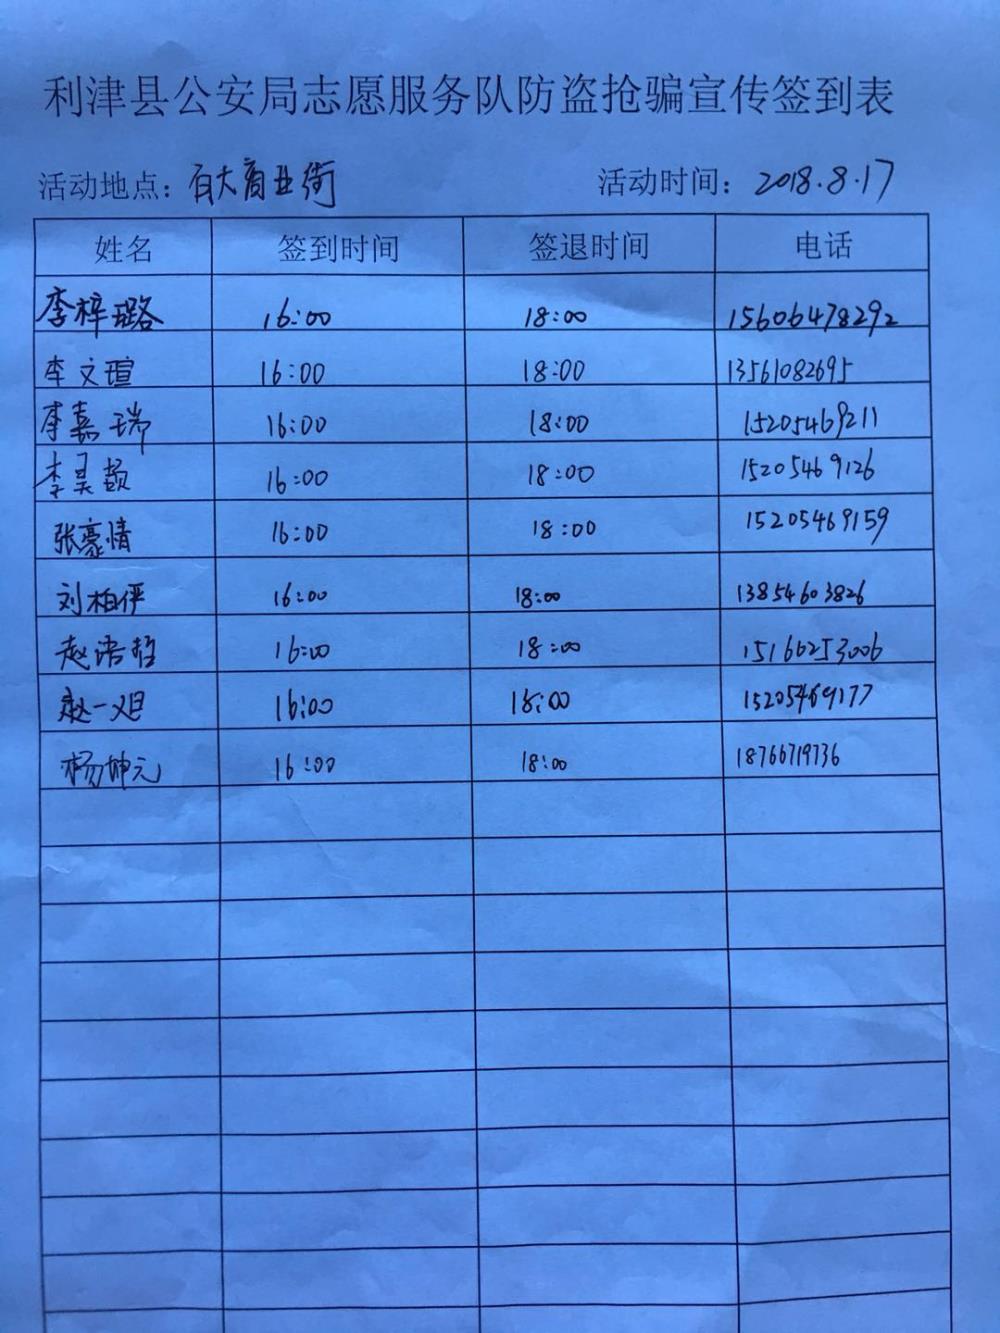 利津县公安局志愿服务队防盗抢骗宣传签到表
活动地点：百大商业街 活动时间：2018.8.17
姓名 签到时间 签退时间 电话
李梓璐 16:00 18:00 15606478292
李文瑄 16:00 18:00 13561082695
李嘉瑞 16:00 18:00 15205469211
李昊颖 16:00 18:00 15205469126
张豪情 16:00 18:00 15205469159
刘柏伊 16:00 18:00 13854603826
赵浩哲 16:00 18:00 15166253006
赵一 16:00 18:00 15205469177
杨坤元 16:00 18:00 18766719736